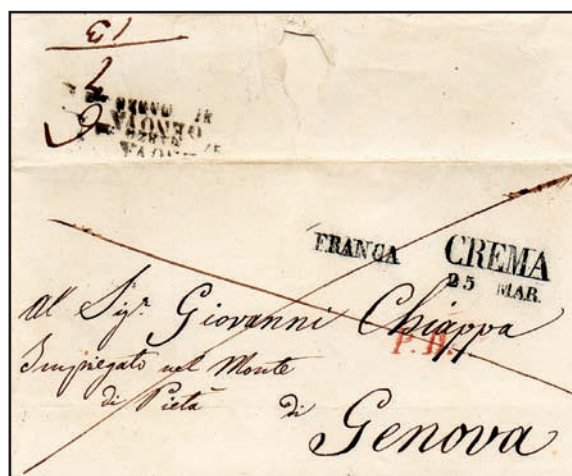 13
7
6
MARZO
GENOVA
MARZO
FRANCA
CREMA
25 MAR.
al Sigr. Giovanni Chiappa
P.D.
Impiegato nel Monte
di Pietà di
Genova